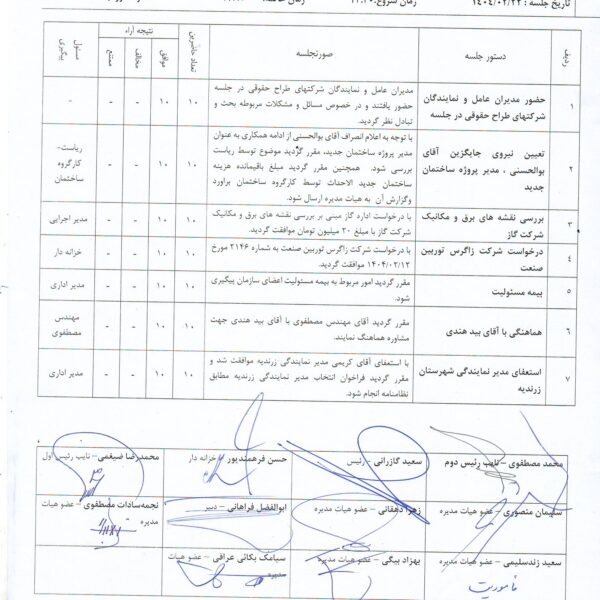 تاریخ جلسه : ۱۴۰۴/۰۲/۲۲
زمان شروع:
ردیف
دستور جلسه
صورتجلسه
تعداد حاضرین
نتیجه آراء
موافق
مخالف
ممتنع
مسئول پیگیری
۱
حضور مدیران عامل و نمایندگان
شرکتهای طراح حقوقی در جلسه
مدیران عامل و نمایندگان شرکتهای طراح حقوقی در جلسه
حضور یافتند و در خصوص مسائل و مشکلات مربوطه بحث و
تبادل نظر گردید.
۱۰
۱۰
-
-
-
۲
تعیین نیروی جایگزین آقای
بوالحسنی ، مدیر پروژه ساختمان
جدید
با توجه به اعلام انصراف آقای بوالحسنی از ادامه همکاری به عنوان
مدیر پروژه ساختمان جدید، مقرر گردید موضوع توسط ریاست
بررسی شود. همچنین مقرر گردید مبلغ باقیمانده هزینه
ساختمان جدید الاحداث توسط کارگروه ساختمان براورد
وگزارش آن به هیات مدیره ارسال شود.
۱۰
۱۰
-
-
ریاست-
کارگروه
ساختمان
۳
بررسی نقشه های برق و مکانیک
شرکت گاز
با درخواست اداره گاز مبنی بر بررسی نقشه های برق و مکانیک
شرکت گاز با مبلغ ۲۰ میلیون تومان موافقت گردید.
۱۰
۱۰
-
-
مدیر اجرایی
۴
درخواست شرکت زاگرس توربین
صنعت
با درخواست شرکت زاگرس توربین صنعت به شماره ۲۱۴۶ مورخ
۱۴۰۴/۰۲/۱۲ موافقت گردید.
۱۰
۱۰
-
-
خزانه دار
۵
بیمه مسئولیت
مقرر گردید امور مربوط به بیمه مسئولیت اعضای سازمان پیگیری
شود.
۱۰
۱۰
-
-
مدیر اداری
۶
هماهنگی با آقای بید هندی
مقرر گردید آقای مهندس مصطفوی با آقای بید هندی جهت
مشاوره هماهنگ نمایند.
۱۰
۱۰
-
-
مهندس
مصطفوی
۷
استعفای مدیر نمایندگی شهرستان
زرندیه
با استعفای آقای کریمی مدیر نمایندگی زرندیه موافقت شد و
مقرر گردید فراخوان انتخاب مدیر نمایندگی زرندیه مطابق
نظامنامه انجام شود.
۱۰
۱۰
-
-
مدیر اداری
محمد مصطفوی – نایب رئیس دوم
سعید گازرانی – رئیس
حسن فرهمندپور – خزانه دار
محمدرضا ضیغمی – نایب رئیس اول
سلیمان منصوری – عضو هیات
مدیره
زهرا دهقانی – عضو هیات مدیره
ابوالفضل فراهانی – دبیر
نجمه‌سادات مصطفوی – عضو هیات
مدیره
سعید زندسلیمی – عضو هیات مدیره
بهزاد بیگی – عضو هیات مدیره
سیامک بکائی عراقی – عضو هیات
مدیره
ماموریت